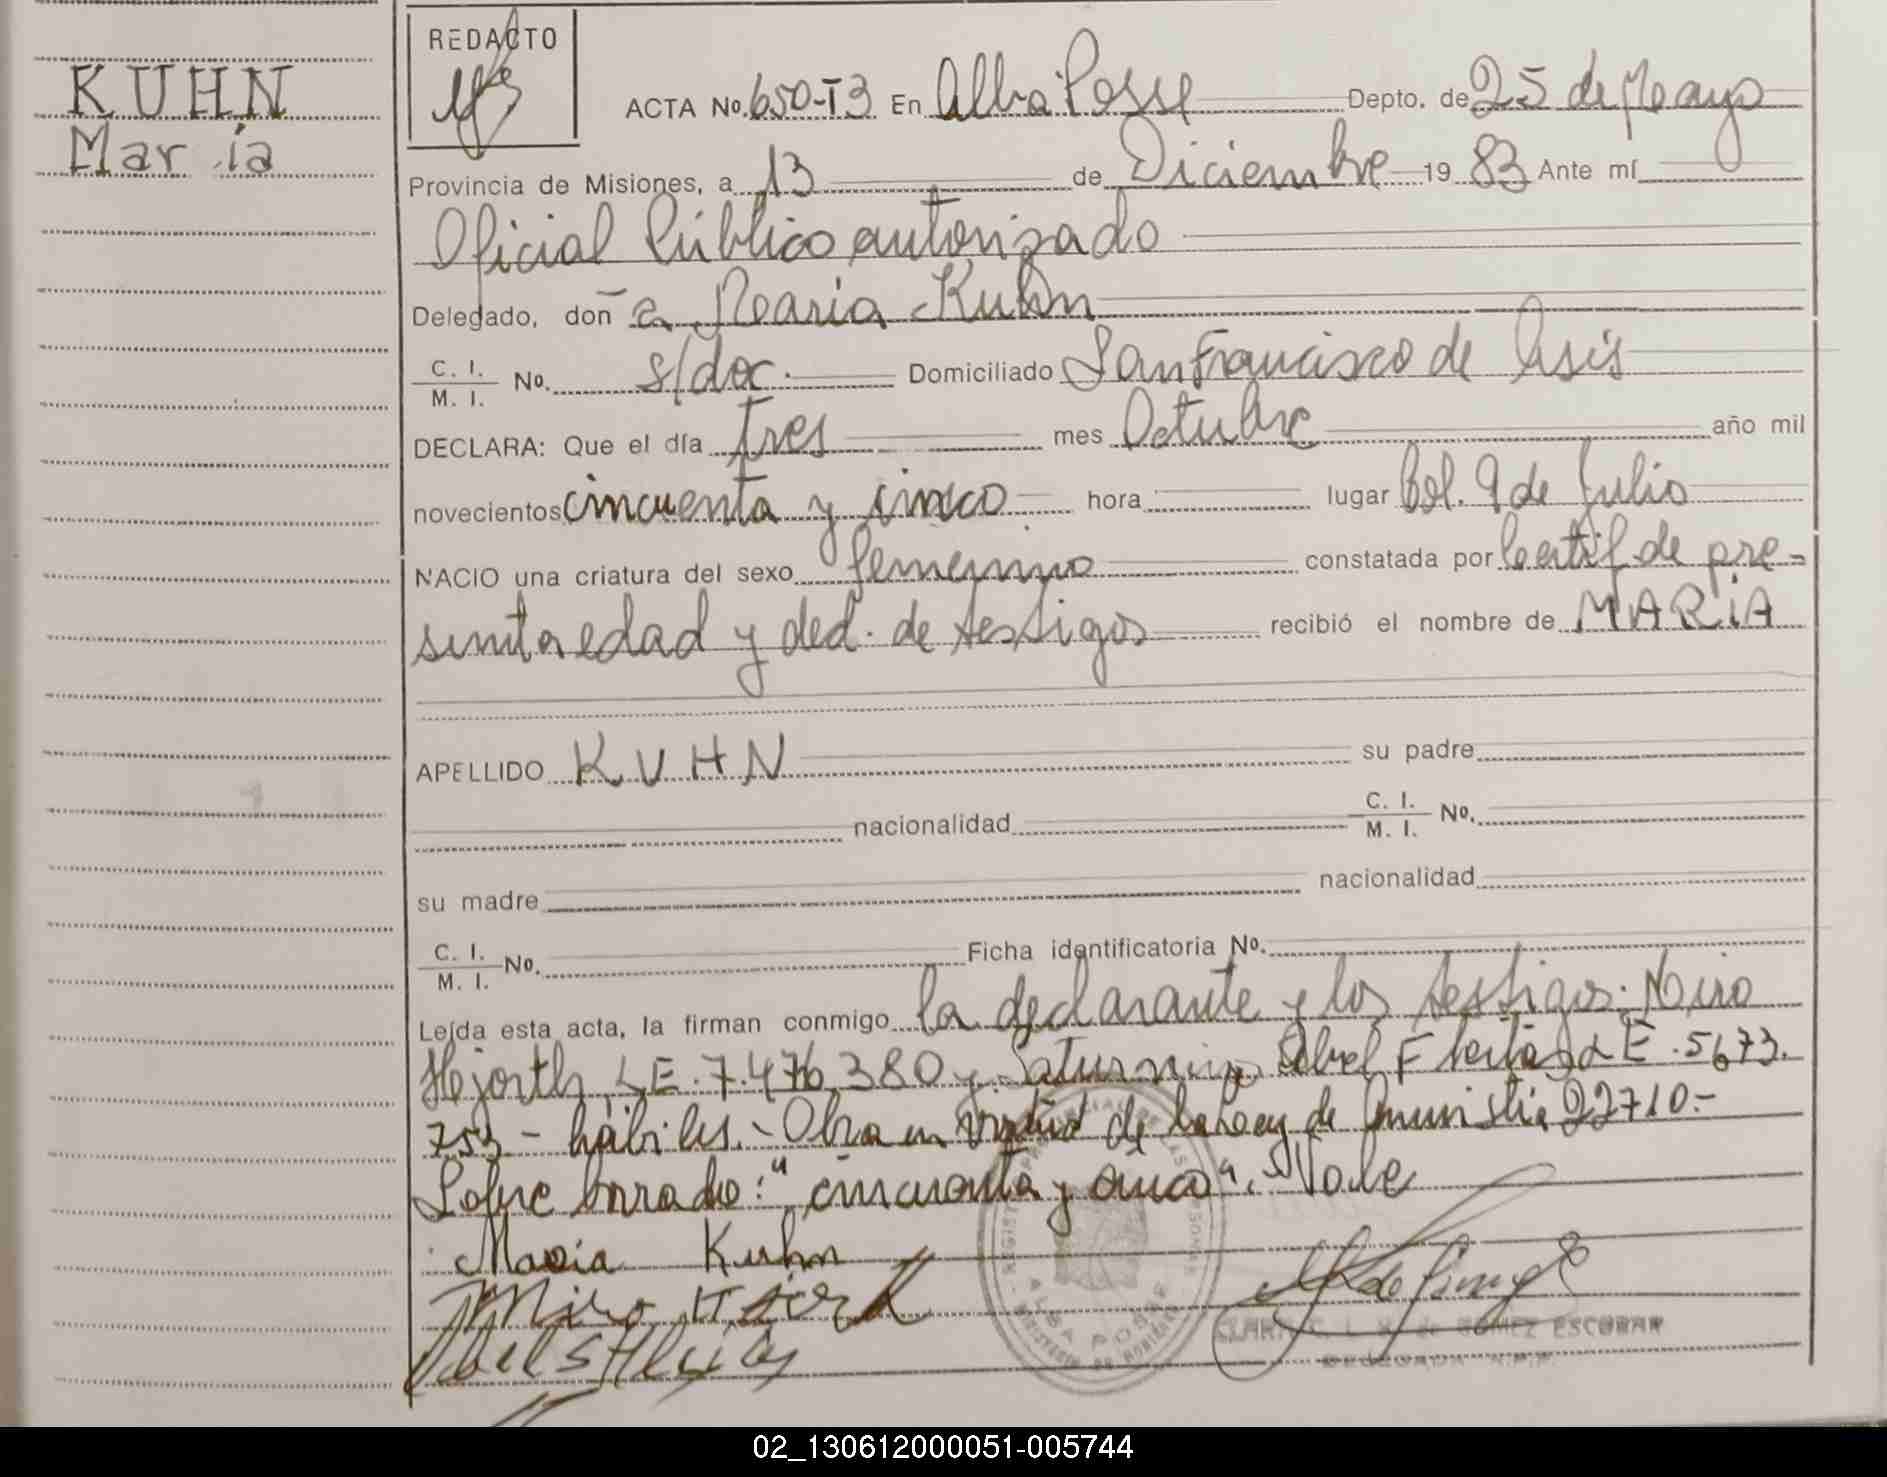 KUHN
María
REDACTO
ACTA No. 650-T3 En Alba Posse Depto. de 25 de Mayo
Provincia de Misiones, a 13 de Diciembre 19 83 Ante mí
Oficial Público autorizado
Delegado, don a Maria Kuhn
C. I.
M. I. No. s/doc. Domiciliado San Francisco de Asis
DECLARA: Que el día tres mes Octubre año mil
novecientos cincuenta y cinco hora lugar Col. 9 de Julio
NACIO una criatura del sexo femenino constatada por Certif de pre-
sunta edad y decl. de testigos recibió el nombre de MARiA
APELLIDO KUHN su padre
nacionalidad C. I.
M. I. No.
su madre nacionalidad
C. I.
M. I. No. Ficha identificatoria No.
Leída esta acta, la firman conmigo la declarante y los testigos: Miro
Hejorth, L.E. 7.476.380 y Saturnino Abel F L E. 5673.
753 - hábiles. - Obra en virtud de la Ley de Amnistia 22710.-
Sobre borrado: "cincuenta y cinco". Vale
Maria Kuhn
Miro
Abel S
ALBA POSSE
CLARA C. L. de GOMEZ ESCOBAR
02_130612000051-005744